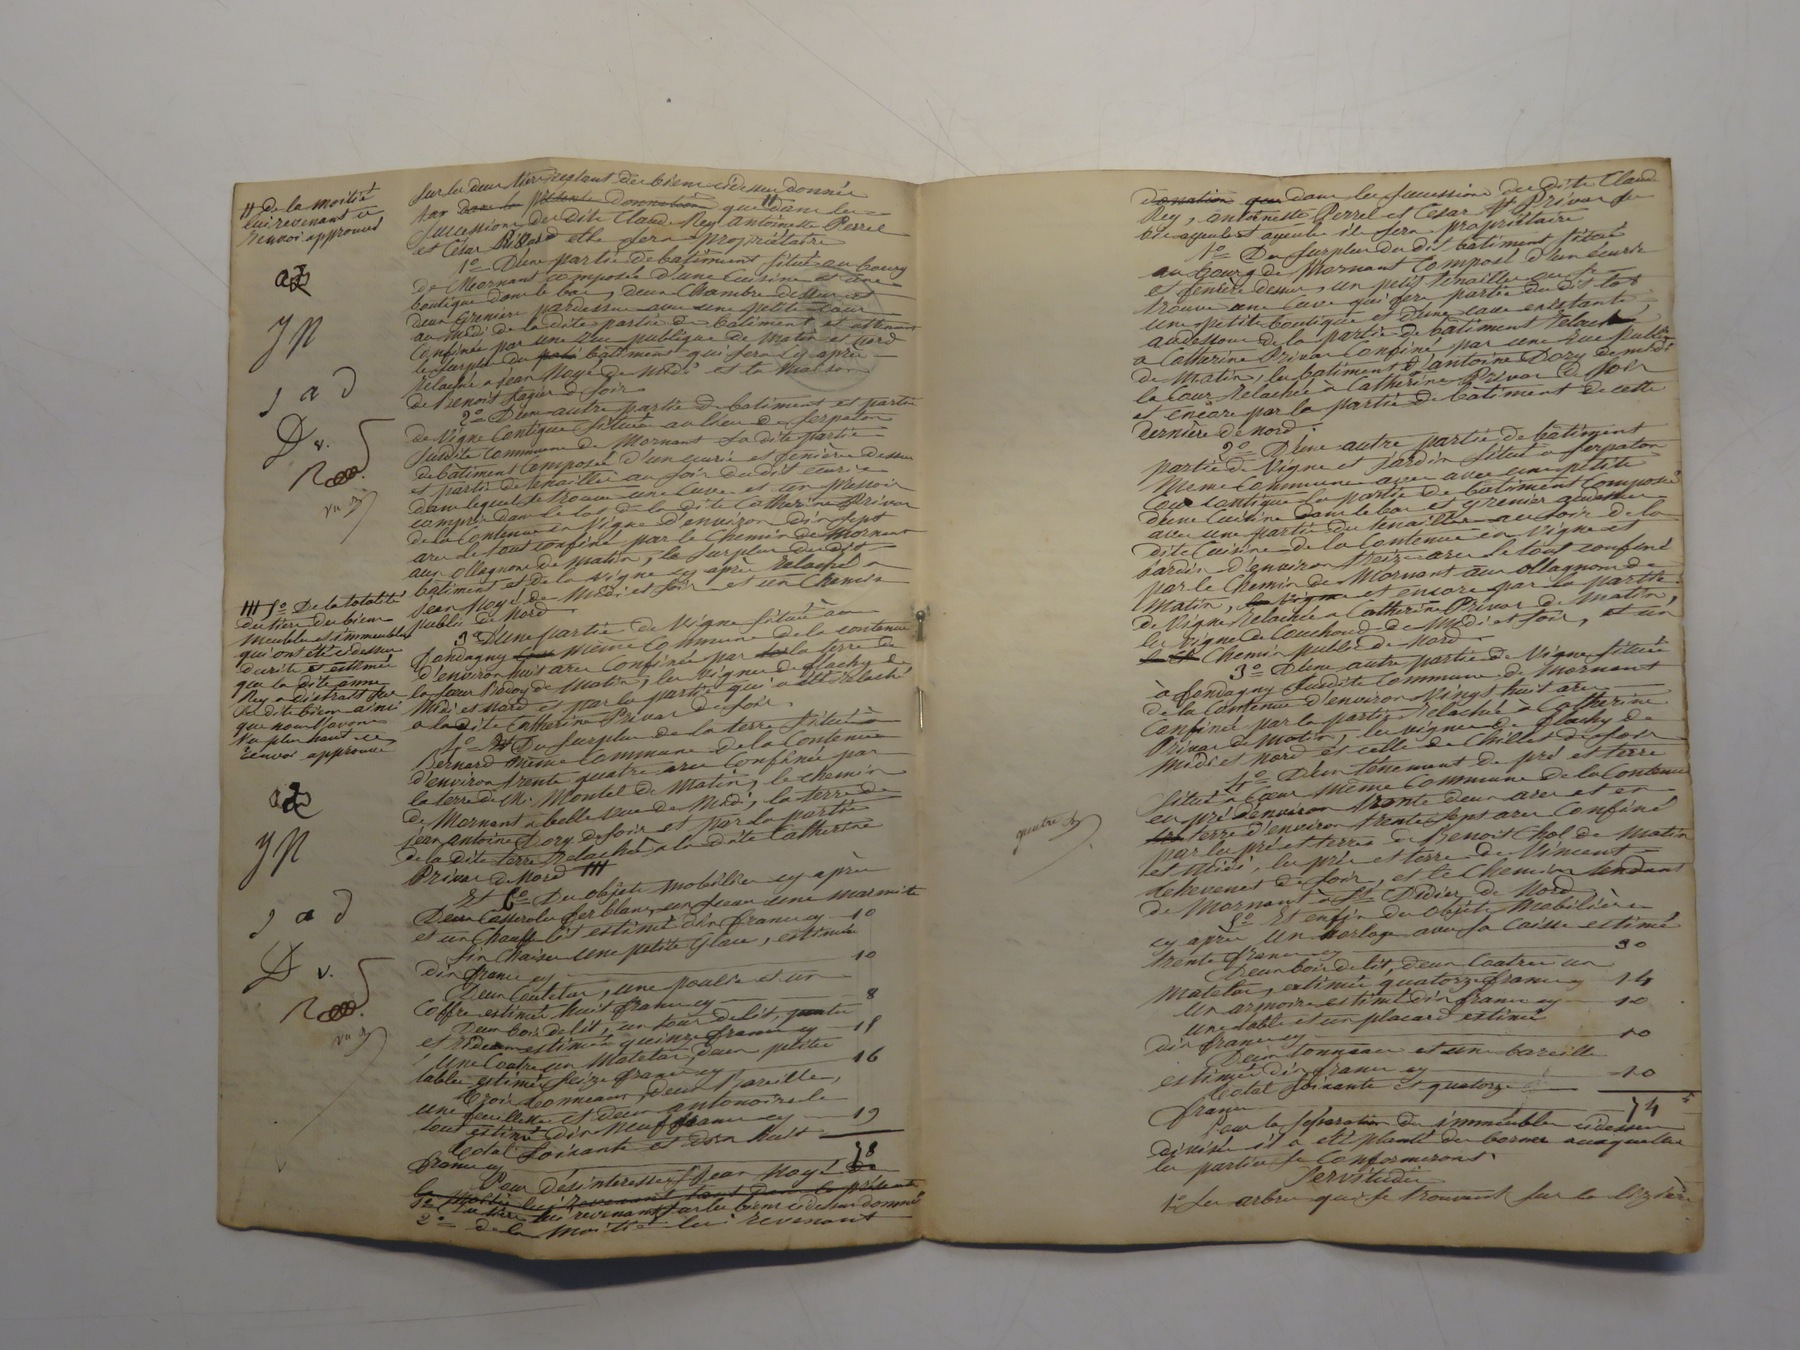 H De la moitié
lui revenant ce
renvoi approuvé
JP
s a d
D v.
HH 1o De la totalité
du tiers des biens
meubles et immeubles
qui ont été cidessus
décrits et estimés
que la dite anne
Rey a distrait sur
sa dite bien ainsi
que nous l'avons
vu plus haut ce
renvoi approuvé
JP
s a d
D v.
sur les deux tiers restant des biens cidessus donnés
tant dans la présente donnation que H dans les
successions des dits Claude Rey Antoinette Perret
et César Privard elle sera propriétaire
1o D'une partie de batiment situé au bourg
de Mornant composée d'une cuisine et une
boutique dans le bas, deux chambres dessus et
deux greniers pardessus avec une petite cour
au midi de la dite partie de batiment et attenant
Confinée par une rue publique de matin et nord
le surplus du batiment qui sera cy après
relaché à jean Noyé de midi et la maison
de Benoit de soir
2o D'une autre partie de batiment et partie
de vigne contigue située au lieu de serpaton
susdite commune de Mornant la dite partie
de bâtiment composée d'un ecurie et fenière dessus
et partie de tenaillier au soir du dit ecurie
dans lequel se trouve une cuve et un pressoir
compris dans le lot de la dite Catherine Privar
de la contenue en vigne d'environ dix sept
ares le tout confiné par le chemin de Mornant
aux ollagnons de matin, le surplus du dit
bâtiment et de la vigne cy après relaché à
jean Noyé de midi et soir et un chemin
public de nord
3o D'une partie de vigne située à
fondagny même commune de la contenue
d'environ huit ares confinée par la terre de
la sœur de matin, les vignes de flachy de
midi et nord et par la partie qui a été relaché
a la dite Catherine Privar de soir
4o Du surplus de la terre situé à
Bernard même commune de la contenue
d'environ trente quatre ares confinée par
la terre de Mr Montel de matin, le chemin
de Mornant à belle vue de midi, la terre de
jean antoine Dory de soir et par la partie
de la dite terre relaché a la dite Catherine
Privar de nord HH
Et 5o Des objets mobiliers cy après
Deux casseroles fer blanc, un seau une marmite
et un chauffe lit estimés dix francs cy 10
six chaises une petite glace, estimés
dix francs cy 10
Deux couteaux, une poulie et un
coffre estimés huit francs cy 8
Deux bois de lit, un tour de lit,
et rideaux estimés quinze francs cy 15
Une couatre un matelat, deux petites
tables estimés seize francs cy 16
trois tonneaux, deux bareilles,
une feuillette et deux antonoirs le
tout estimé dix neuf francs cy 19
total soixante et dix huit
francs cy 78
Pour désinteresser Jean Noyé
la moitié lui revenant tant dans la présente
1o Du tiers lui revenant sur les biens cidessus donnés
2o de la moitié lui revenant
quatre
donation que dans les successions des dits Claude
Rey, antoinette Perret et Cesar Privar
ayeul et ayeule il sera propriétaire
1o Du surplus du dit batiment situé
au bourg de Mornant composé d'un écurie
et fenière dessus, un petit tenaillier ou se
trouve une cuve qui fera partie du dit lot
une petite boutique et d'une cave existante
audessous de la partie de bâtiment relaché
a Catherine Privar confiné par une rue publique
de matin, les batiments d'antoine Dory de midi
la cour relaché à Catherine Privar de soir
et encore par la partie de bâtiment de cette
dernière de nord.
2o D'une autre partie de bâtiment
partie de vigne et jardin situé à serpaton
même commune avec une petite
cour contigue la partie de bâtiment composée
d'une cuisine dans le bas et grenier audessus
avec une partie du tenaillier au soir de la
dite cuisine de la contenue en vigne et
jardin d'environ treize ares le tout confiné
par le chemin de Mornant aux ollagnons de
matin, la vigne et encore par la partie
de vigne relachée a Catherine Privar de matin,
les vignes de Couchoud de midi et soir, et un
chemin public de nord
3o D'une autre partie de vigne située
à fondagny susdite commune de Mornant
de la contenue d'environ vingt huit ares
Confinée par la partie relachée à Catherine
Privar de matin, les vignes de flachy de
midi et nord et celle de Chillet de soir
4o D'un tènement de pré et terre
situé à Cœur même commune de la contenue
en pré d'environ trente deux ares et en
terre d'environ trente sept ares confiné
par les prés et terres de Benoit Chol de matin
et midi, les prés et terre de Vincent
de soir, et le chemin tendant
de Mornant à St Didier de nord
5o Et enfin des objets mobiliers
cy après un horloge avec sa caisse estimé
trente francs cy 30
Deux bois de lit, deux couatres un
matelat, estimés quatorze francs cy 14
Un armoire estimé dix francs cy 10
Une table et un placard estimés
dix francs cy 10
Deux tonneaux et une bareille
estimés dix francs cy 10
total soixante et quatorze
francs 74
Pour la séparation des immeubles cidessus
divisés il a été planté des bornes auxquelles
les parties se conformeront.
Servitudes
1o Les arbres qui se trouvent sur la lizière